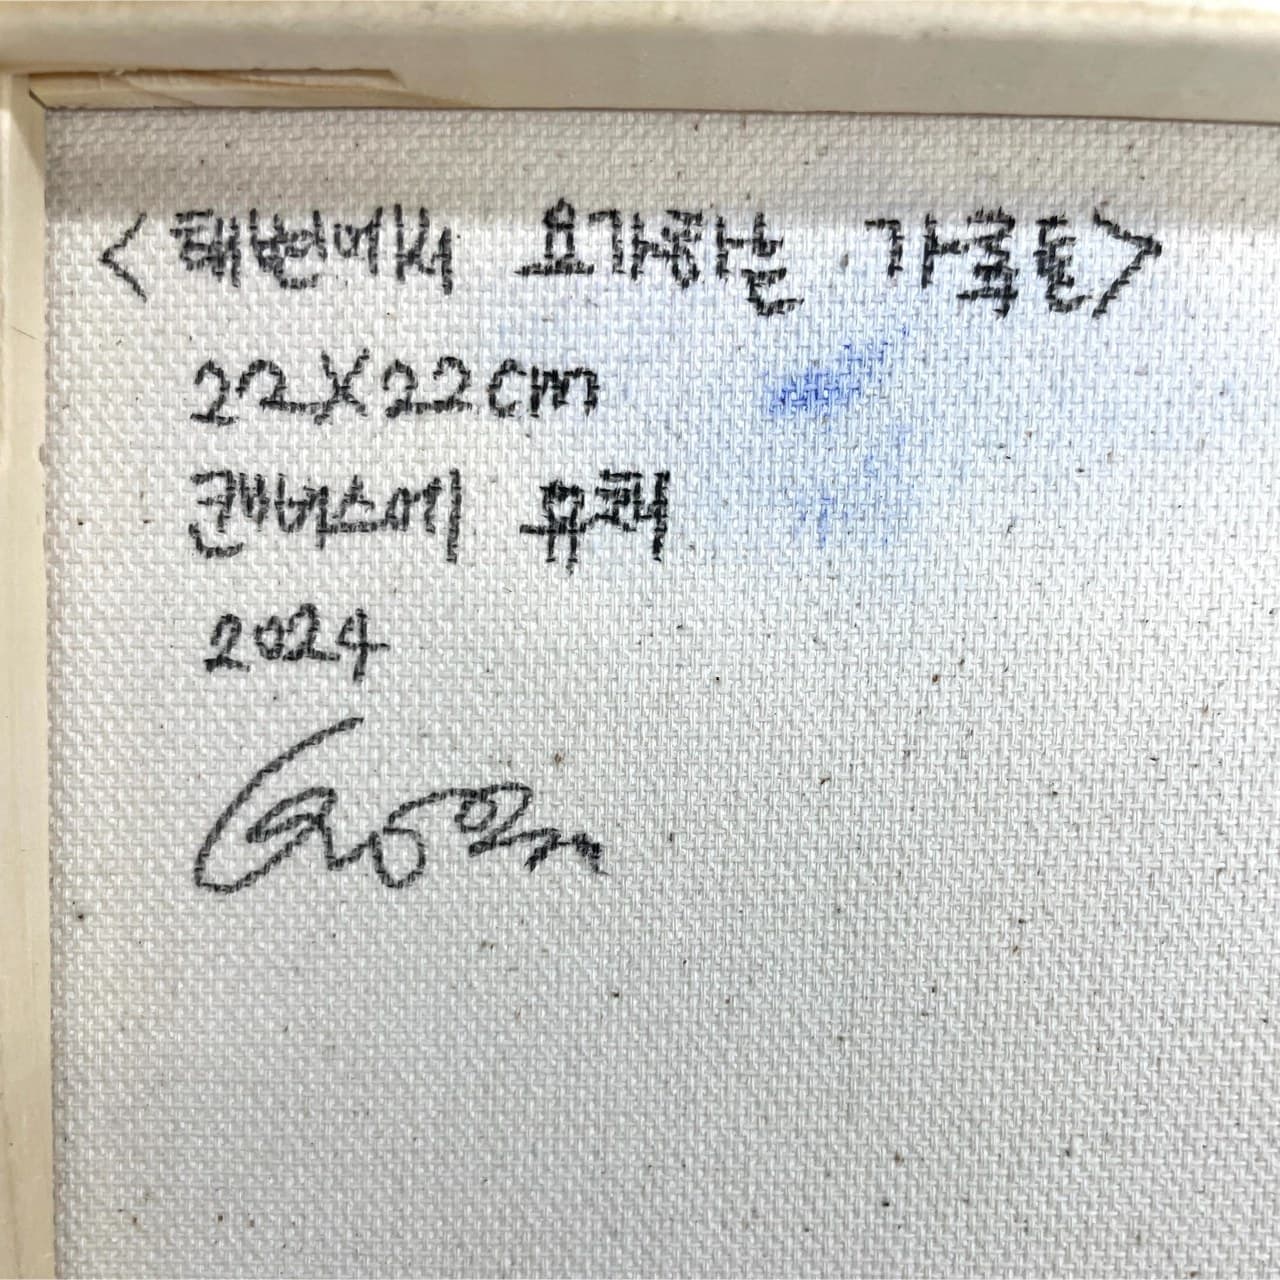 <해변에서 요가하는 가족들>
22X22cm
캔버스에 유채
2024